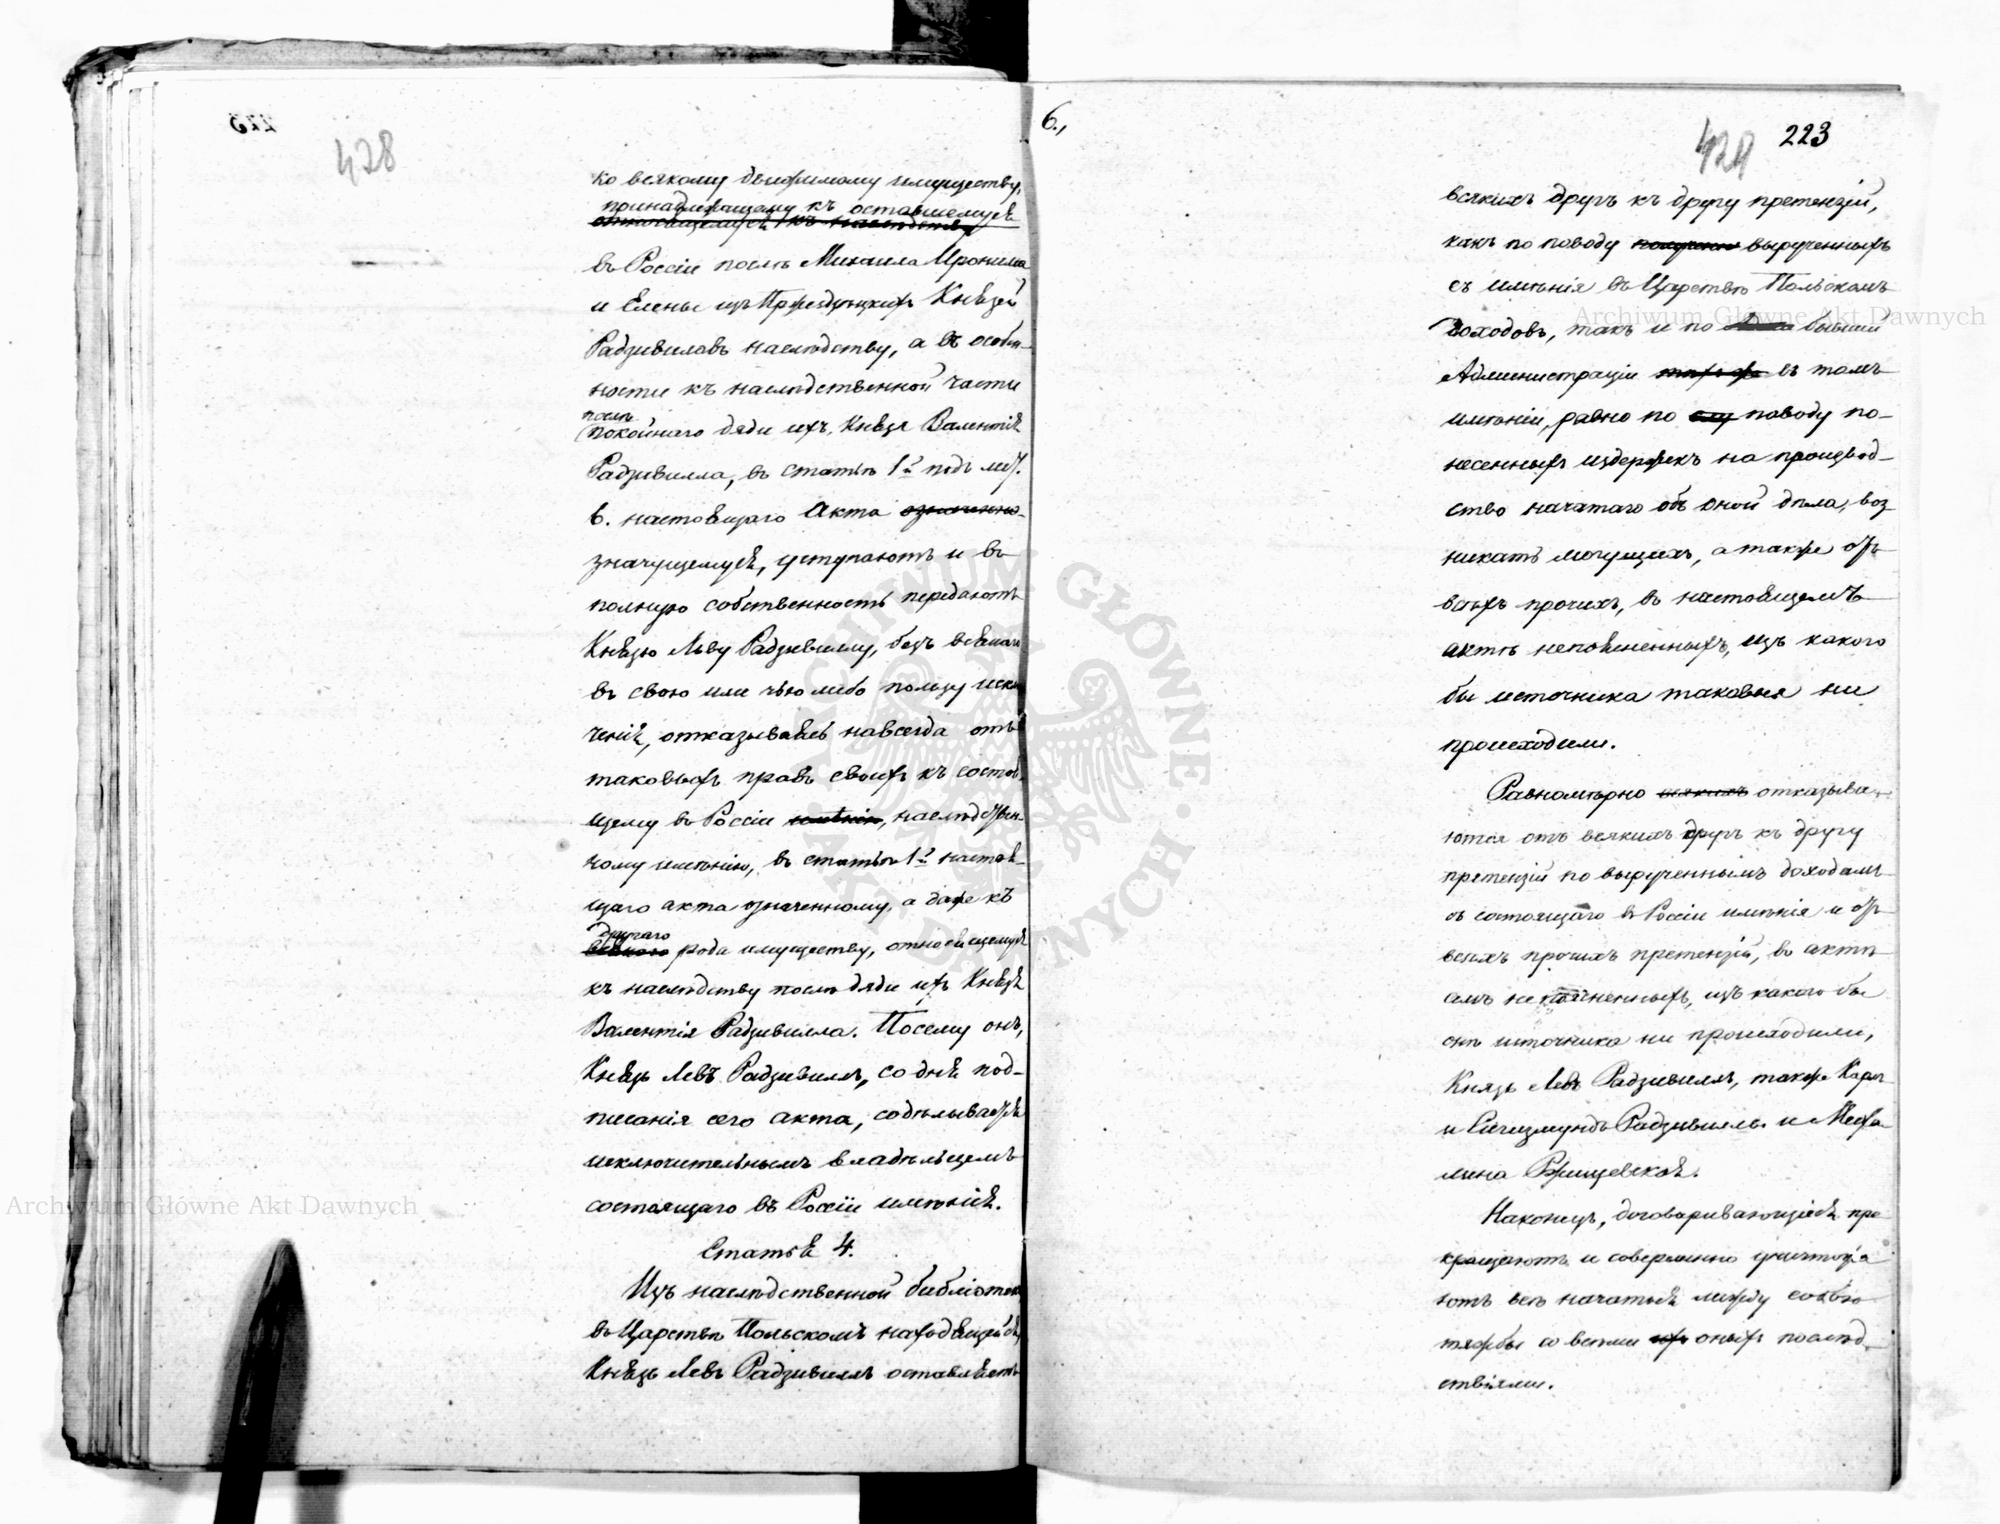 428
ко всякому движимому имуществу,
принадлежащему къ оставшемуся
относящемуся къ наслѣдству
въ Россіи послѣ Михаила Иронима
и Елены изъ Пржездзецкихъ Князей
Радзивиловъ наслѣдству, а въ особен-
ности къ наслѣдственной части
послѣ
покойнаго дяди ихъ, Князя Валентія
Радзивилла, въ статьѣ 1й подъ лит.
в. настоящаго Акта означенно-
значущемуся, уступаютъ и въ
полную собственность передаютъ
Князю Льву Радзивиллу, безъ всякаго
въ свою или чью либо пользу исклю
ченія, отказываясь навсегда отъ
таковыхъ правъ своихъ къ состоя-
щему въ Россіи имѣнію, наслѣдствен-
ному имѣнію, въ статьѣ 1й настоя-
щаго акта означенному, а даже къ
другаго
всякаго рода имуществу, относящемуся
къ наслѣдству послѣ дяди ихъ Князя
Валентія Радзивилла. Посему онъ,
Князь Левъ Радзивиллъ, со дня под-
писанія сего акта, содѣлывается
исключительнымъ владѣльцемъ
состоящаго въ Россіи имѣнія.
Статья 4.
Изъ наслѣдственной библіотеки
въ Царствѣ Польскомъ находящейся,
Князь Левъ Радзивиллъ оставляетъ
6.,
429 223
всякихъ другъ къ другу претензій,
какъ по поводу вырученныхъ
съ имѣнія въ Царствѣ Польскомъ
доходовъ, такъ и по бывшей
Администраціи въ томъ
имѣніи, равно по поводу по-
несенныхъ издержекъ на производ-
ство начатаго объ оной дѣла, воз
никать могущихъ, а также отъ
всѣхъ прочихъ, въ настоящемъ
актѣ непоясненныхъ, изъ какого
бы источника таковыя ни
происходили.
Равномѣрно всякихъ отказыва-
ются отъ всякихъ другъ къ другу
претензій по вырученнымъ доходамъ
съ состоящаго въ Россіи имѣнія и отъ
всѣхъ прочихъ претензій, въ актѣ
семъ непоясненныхъ, изъ какого бы
онѣ источника ни происходили,
Князь Левъ Радзивиллъ, также Карлъ
и Сигизмундъ Радзивиллы и Мефа
лина Ржищевская.
Наконецъ, договаривающіеся пре
кращаютъ и совершенно уничтожа
ютъ всѣ начатыя между собою
тяжбы со всѣми ихъ оныхъ послѣд-
ствіями.
Archiwum Główne Akt Dawnych
Archiwum Główne Akt Dawnych
ARCHIWUM GŁÓWNE · AKT DAWNYCH ·